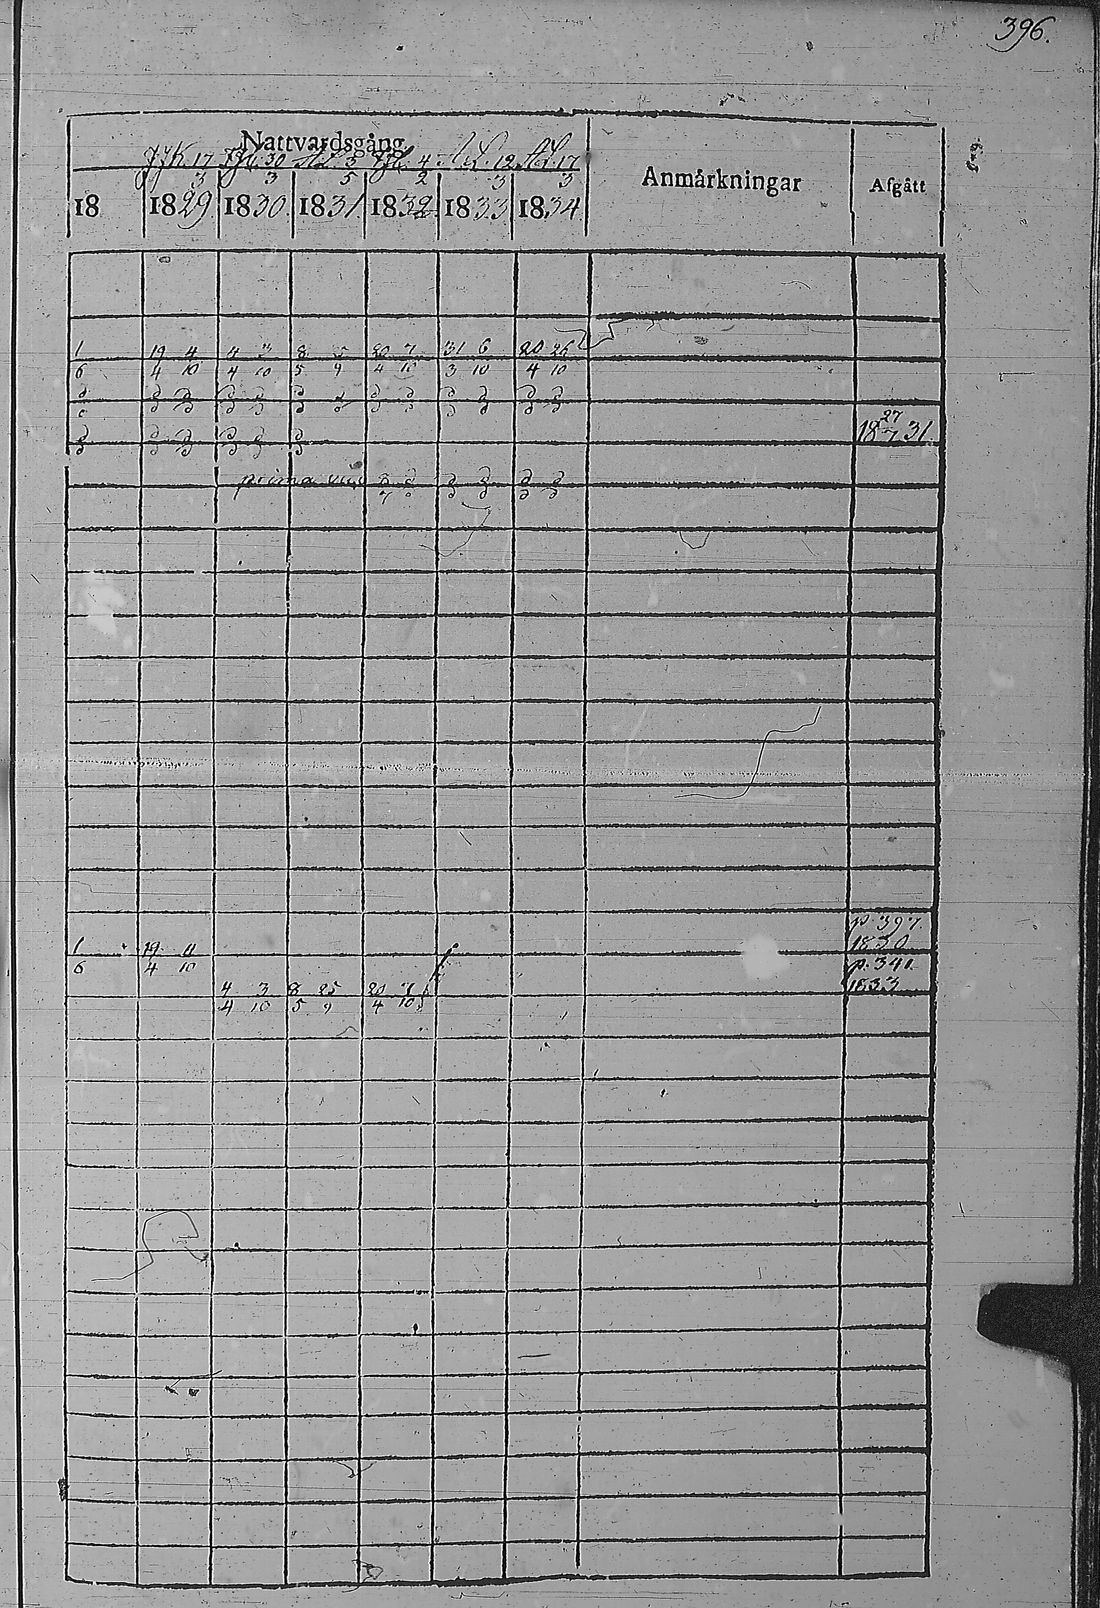 396.
Nattvardsgång
Anmärkningar
Afgått
17 30 3 4 12 17
3 3 5 2 3 3
18 1829 1830 1831 1832 1833 1834
1 19 4 4 3 8 5 20 7 31 6 20 26
6 4 10 4 10 5 9 4 10 3 10 4 10
27
18 7 31
prima vice
p. 397
1 19 4 1830
6 4 10 p. 341
4 3 8 25 20 7 1833
4 10 5 9 4 10